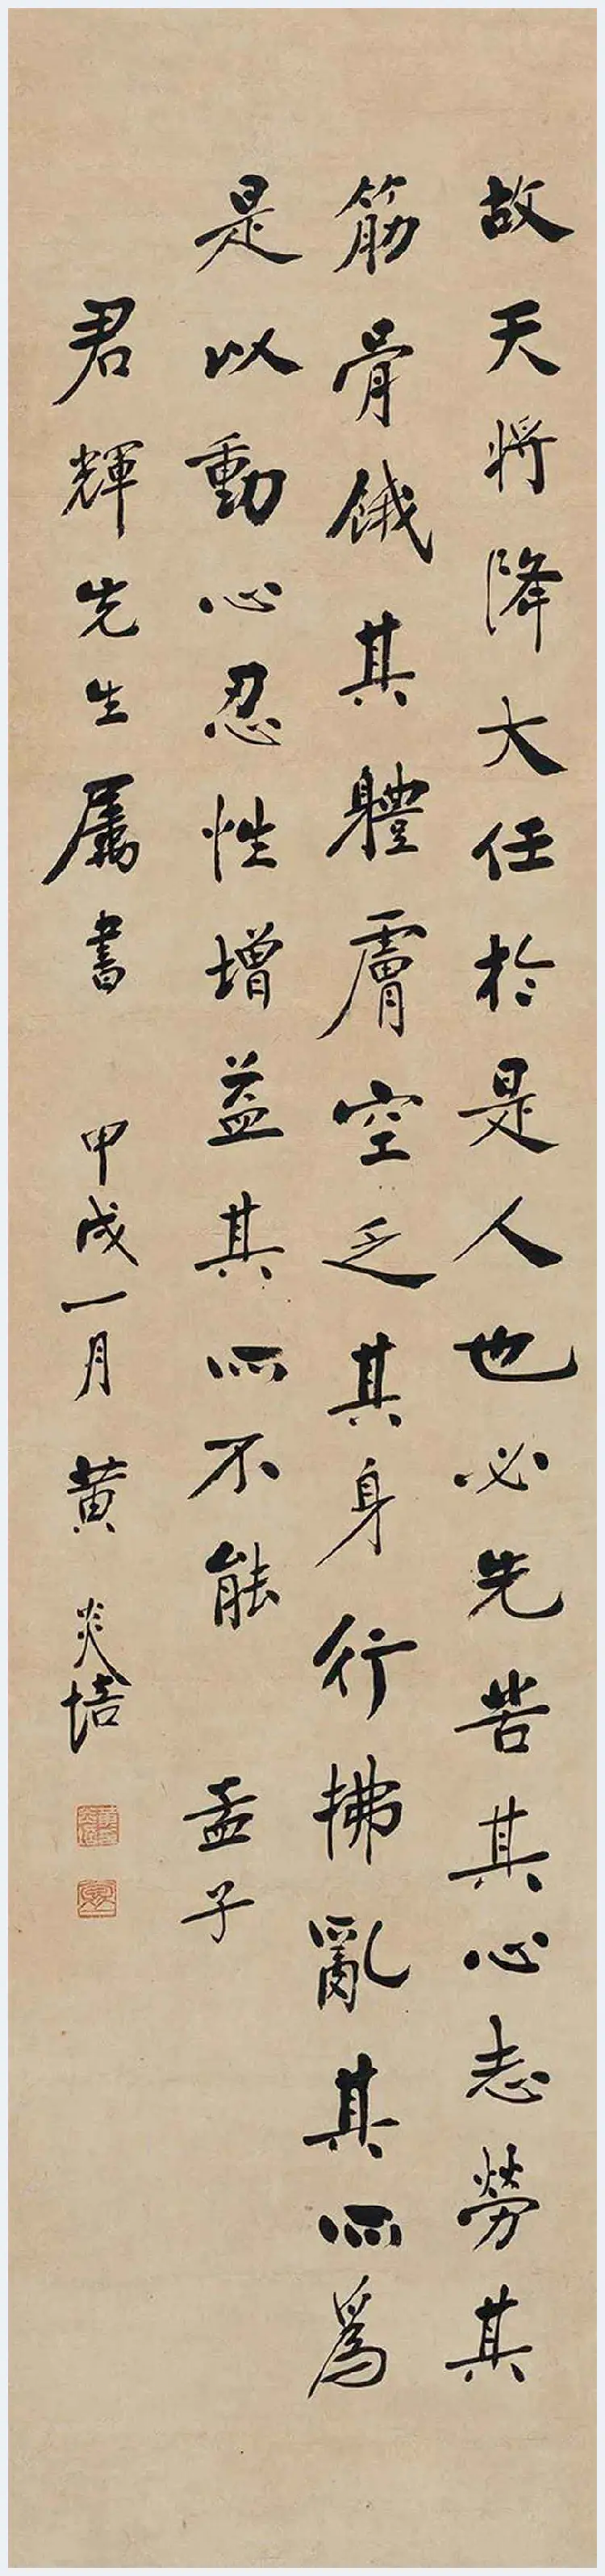 故天將降大任於是人也必先苦其心志勞其
筋骨餓其體膚空乏其身行拂亂其所爲
是以動心忍性增益其所不能 孟子
君輝先生屬書 甲戌一月 黄炎培